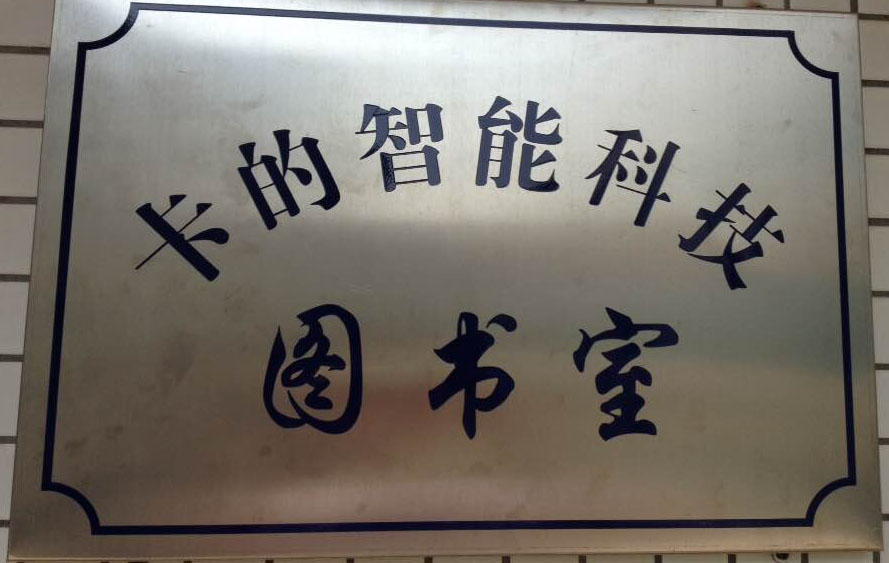 卡的智能科技
图书室